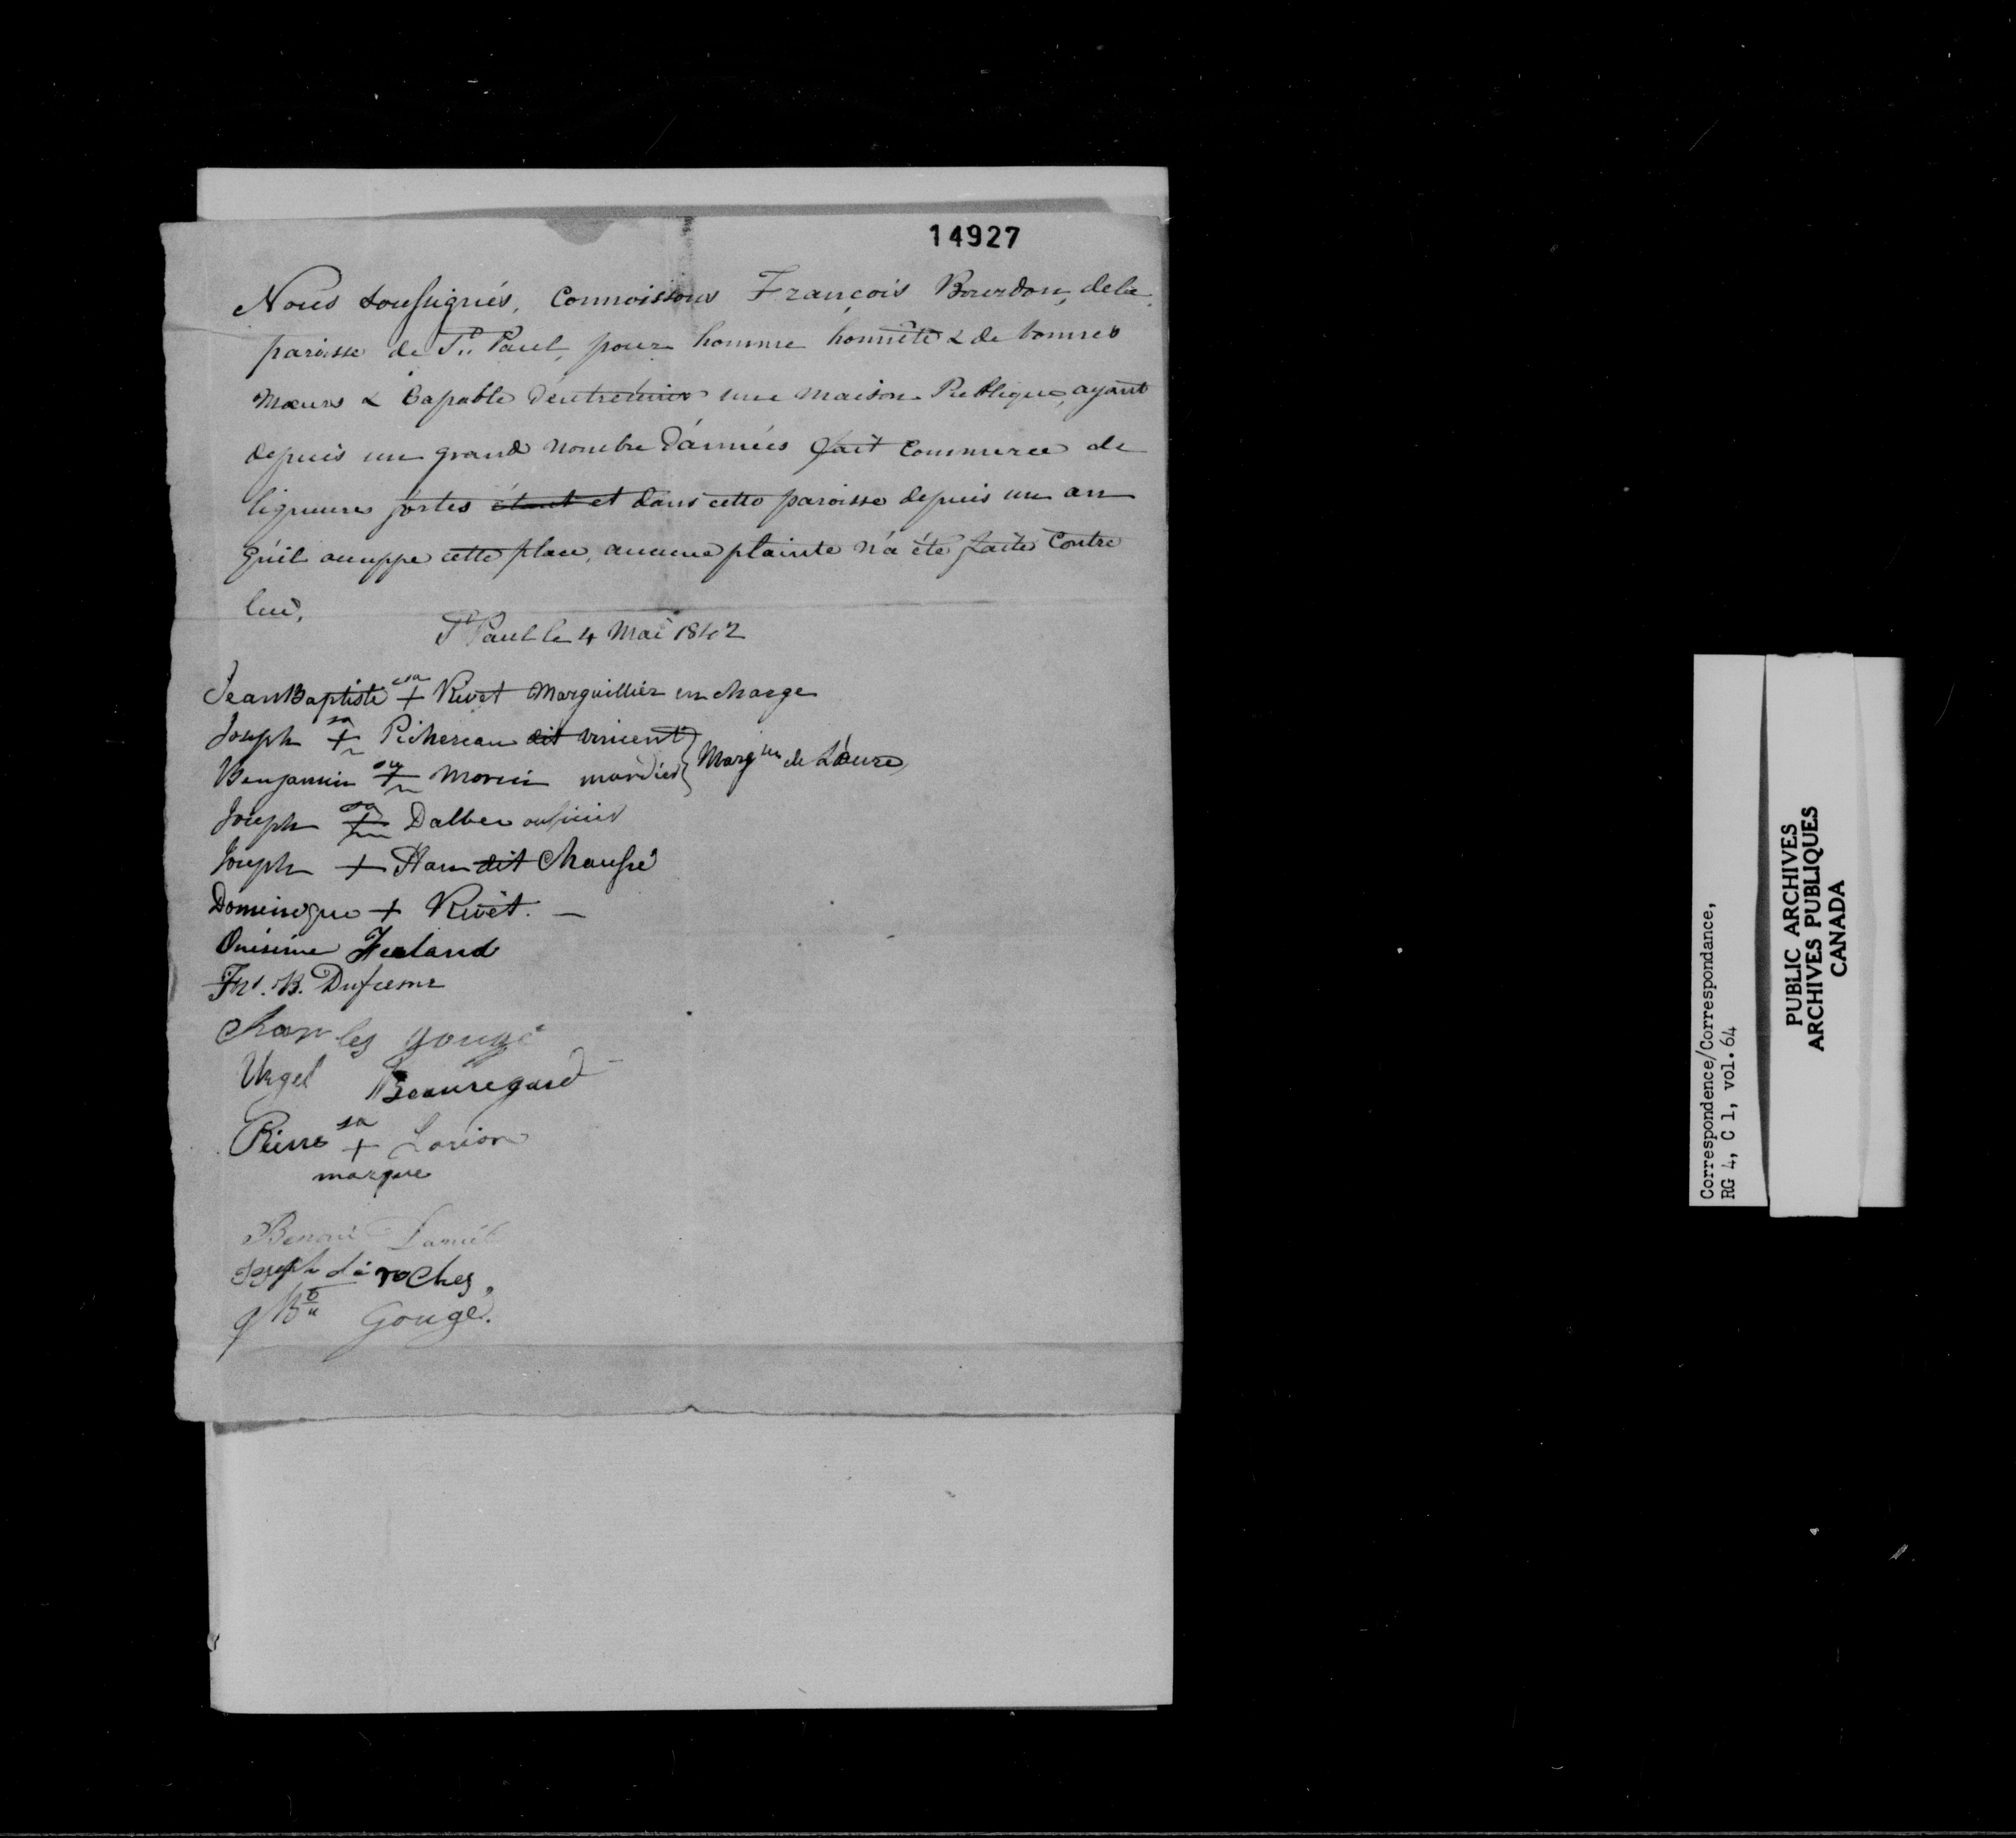 14927
Nous soussignés, Connoissons François Bourdon, dela
paroisse de St. Paul, pour homme honnête & de bonnes
mœurs & Capable d'entretenir une maison Publique, ayant
depuis un grand nombre d'années fait Commerce de
liqueurs fortes étant et dans cette paroisse depuis un an
qu'il occuppe cette place, aucune plainte n'a été faite Contre
lui,
St Paul le 4 Mai 1842
Jean Baptiste sa + Rivet Marguillier en charge
Joseph sa + Pichereau dit vincent
Benjamin sa + Morin
Marg de L'œuvre
Joseph sa + Dalbec
Joseph + Ham dit Chaussé
Dominique + Rivêt. —
Onésime Ferland
B. Dufresne
Charles gougé
Urgel Beauregard
Pierre sa + Lorion
marque
Benoni
Joseph déroches,
J Bte Gouge.
Correspondence/Correspondance,
RG 4, C 1, vol. 64
PUBLIC ARCHIVES
ARCHIVES PUBLIQUES
CANADA